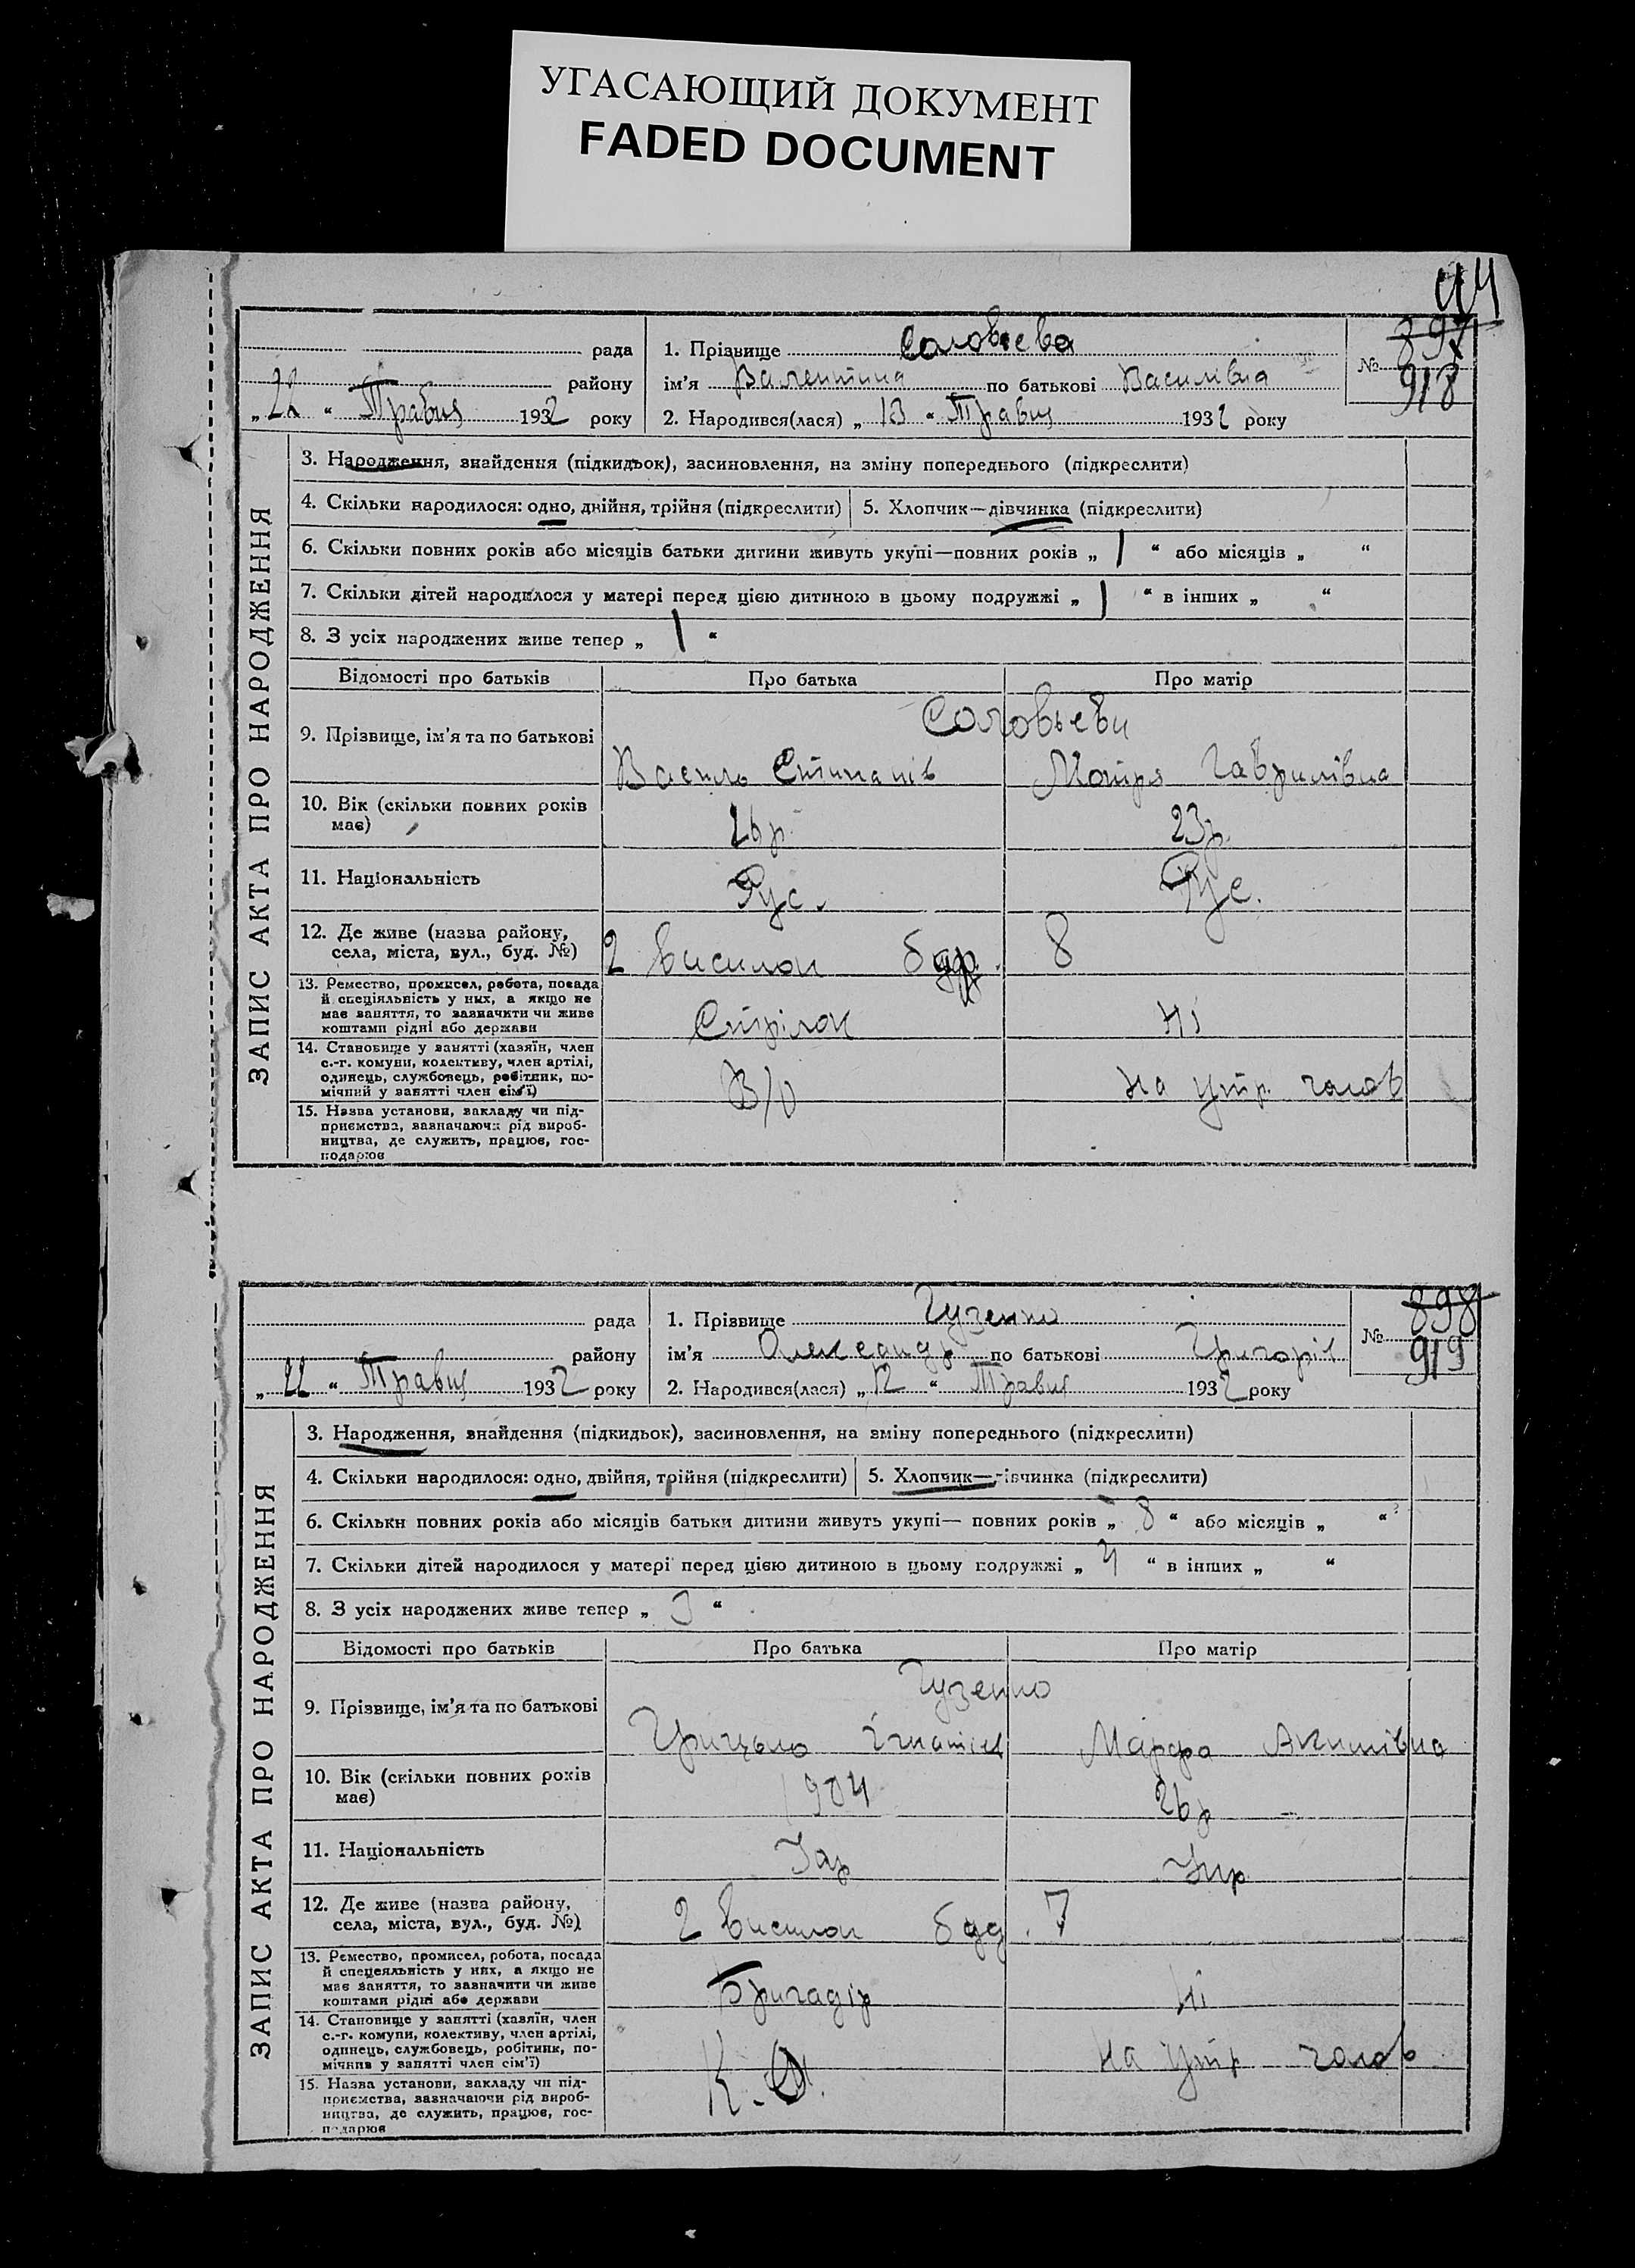 УГАСАЮЩИЙ ДОКУМЕНТ
FADED DOCUMENT
рада
району
„22“ Травня 1932 року
1. Прізвище Соловьева
ім'я Валентина по батькові Василівна
2. Народився(лася) „13“ Травня 1932 року
№ 897
918
ЗАПИС АКТА ПРО НАРОДЖЕННЯ
3. Народження, знайдення (підкидьок), засиновлення, на зміну попереднього (підкреслити)
4. Скільки народилося: одно, двійня, трійня (підкреслити) 5. Хлопчик—дівчинка (підкреслити)
6. Скільки повних років або місяців батьки дитини живуть укупі—повних років „1“ або місяців „ “
7. Скільки дітей народилося у матері перед цією дитиною в цьому подружжі „1“ в інших „ “
8. З усіх народжених живе тепер „1“
Відомості про батьків Про батька Про матір
9. Прізвище, ім'я та по батькові
Соловьеви
Василь Степанів Мотря Гаврилівна
10. Вік (скільки повних років
має)
26 р. 23 р.
11. Національність Рус. Рус.
12. Де живе (назва району,
села, міста, вул., буд. №)
2 висилок буд. 8
13. Ремество, промисел, робота, посада
й спеціяльність у них, а якщо не
має заняття, то зазначити чи живе
коштами рідні або держави
Стрілок Ні
14. Становище у занятті (хазяїн, член
с.-г. комуни, колективу, член артілі,
одинець, службовець, робітник, по-
мічний у занятті член сім'ї)
В/О На утр. голов
15. Назва установи, закладу чи під-
приємства, зазначаючи рід вироб-
ництва, де служить, працює, гос-
подарює
рада
району
„22“ Травня 1932 року
1. Прізвище Гузенко
ім'я Олександр по батькові Григорів
2. Народився(лася) „12“ Травня 1932 року
№ 898
919
ЗАПИС АКТА ПРО НАРОДЖЕННЯ
3. Народження, знайдення (підкидьок), засиновлення, на зміну попереднього (підкреслити)
4. Скільки народилося: одно, двійня, трійня (підкреслити) 5. Хлопчик—дівчинка (підкреслити)
6. Скільки повних років або місяців батьки дитини живуть укупі— повних років „8“ або місяців „ “
7. Скільки дітей народилося у матері перед цією дитиною в цьому подружжі „4“ в інших „ “
8. З усіх народжених живе тепер „3“
Відомості про батьків Про батька Про матір
9. Прізвище, ім'я та по батькові
Гузенко
Грицько Ігнатів Марфа Акимівна
10. Вік (скільки повних років
має)
1904 26 р
11. Національність Укр
12. Де живе (назва району,
села, міста, вул., буд. №)
2 висилок буд. 7
13. Ремество, промисел, робота, посада
й спецеяльність у них, а якщо не
має заняття, то зазначити чи живе
коштами рідні або держави
Бригадір Ні
14. Становище у занятті (хазяїн, член
с.-г. комуни, колективу, член артілі,
одинець, службовець, робітник, по-
мічник у занятті член сім'ї)
На утр голов
15. Назва установи, закладу чи під-
приємства, зазначаючи рід вироб-
ництва, де служить, працює, гос-
подарює